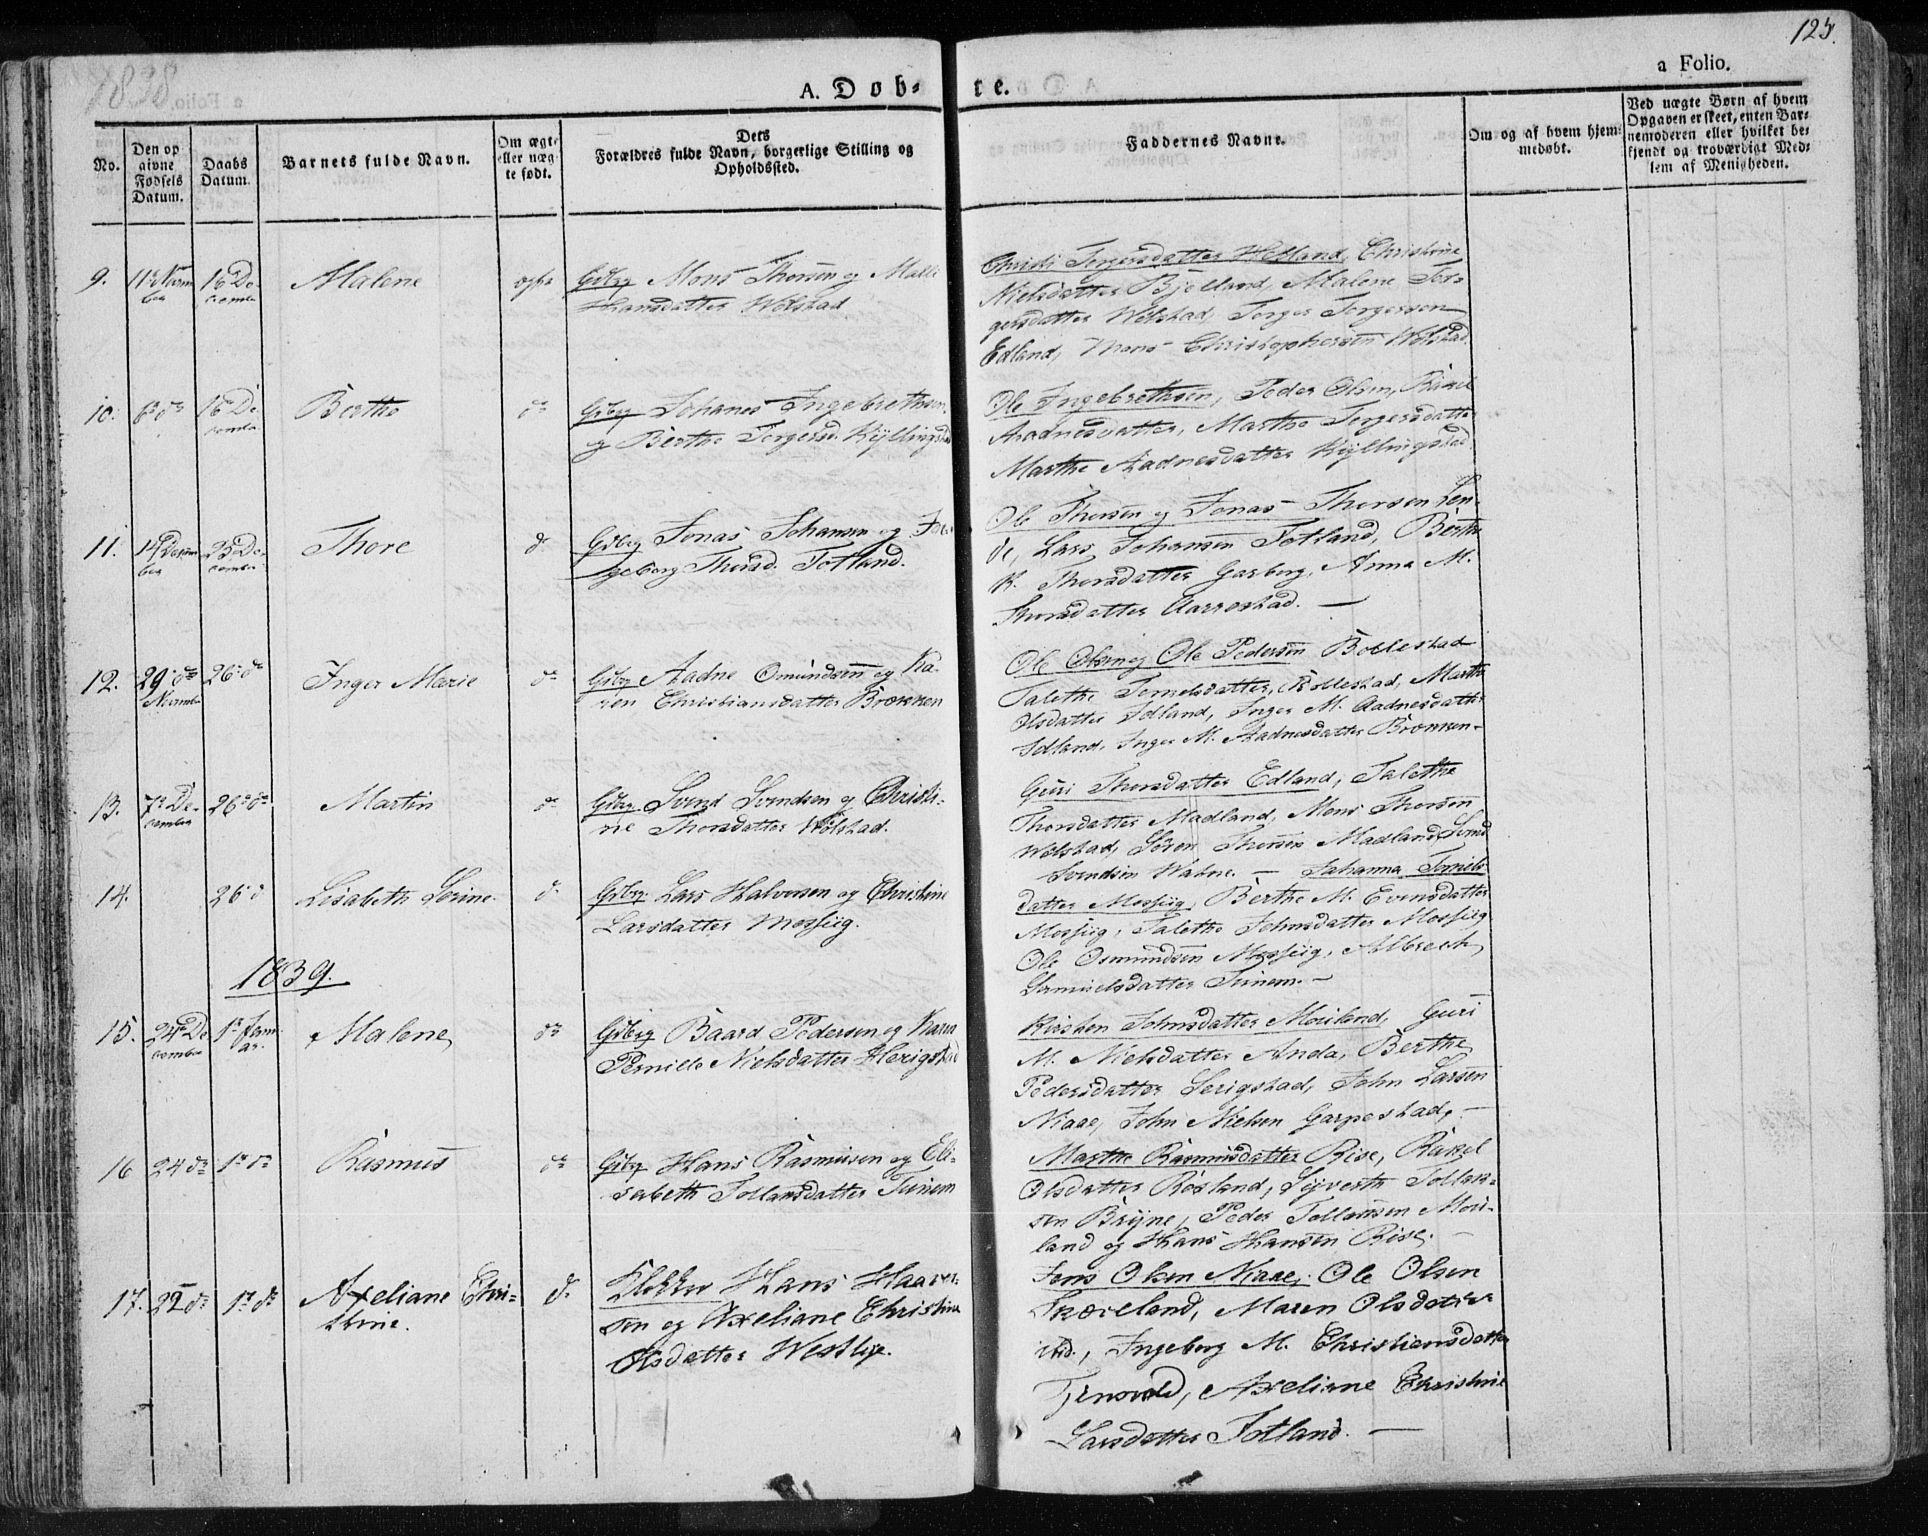 1838.
125.
A. Döb-
te.
a Folio.
No.
Den op
givne
Fødsels
Datum.
Daabs
Datum.
Barnets fulde Navn.
Om ægte
eller uæg-
te født.
Dets
Forældres fulde Navn, borgerlige Stilling og
Opholdssted.
Faddernes Navne.
Om og af hvem hjem-
medøbt.
Ved uægte Børn af hvem
Opgaven er skeet, enten Bar-
nemoderen eller hvilket be-
kjendt og troværdigt Med-
lem af Menigheden.
9. 11te Novem
ber
16 De
cember
Malene
ægte
Gdbrg Mons Thorsen og Malle
Hansdatter Wolstad
Christi Torgersdatter Hetland, Christine
Nielsdatter Bjelland, Malene Tor-
gersdatter Wolstad, Torger Torgersen
Edland, Mons Christophersen Wolstad.
10. 6te do
16 De
cember
Berthe
do
Gdbrg Johanes Ingebrethsen
og Berthe Torgersd. Kyllingstad
Ole Ingebrethsen, Peder Olsen, Rakel
Aadnesdatter, Marthe Torgersdatter
Marthe Aadnesdatter Kyllingstad
11. 14 Decem
ber
23 De
cember
Thore
do
Gdbrg Jonas Johansen og In-
geborg Thorsd. Fotland.
Ole Thorsen og Jonas Thorsen Len-
de, Lars Johansen Fotland, Berthe
K. Thorsdatter Garborg, Anna M.
Thorsdatter Aarrestad. —
12. 29 do
Novembr
26 do
Inger Marie
do
Gdbrg Aadne Osmundsen og Ka-
ren Christiansdatter Brekken
Ole Olsen og Ole Pedersen Bollestad
Talethe Tornelsdatter, Bollestad, Marthe
Olsdatter Idland, Inger M. Aadnesdatter
Idland, Inger M. Aadnesdatter Brekken-
13. 7de De-
cember
26 do
Martin
do
Gdbrg Svend Svendsen og Christi-
ne Thorsdatter Wolstad.
Guri Thorsdatter Edland, Talethe
Thorsdatter Madland, Mons Thorsen
Wolstad, Søren Thorsen Madland, Svend
Svendsen Hahne. —
14.
26 d
Lisabeth Serine.
do
Gdbrg Lars Halvorsen og Christine
Larsdatter Mossiig.
Johanna Torniels
datter Mossiig, Berthe M. Evensdatter
Mossiig, Talethe Johnsdatter Mossiig
Ole Osmundsen Mossiig, Albrech
Samuelsdatter Tunem. —
1839.
15. 24 De
cember
1te Janu
ar.
Malene
do
Gdbrg Baard Pedersen og Karen
Pernille Nielsdatter Herigstad
Kirsten Johnsdatter Moiland, Guri
M. Nielsdatter Anda, Berthe
Pedersdatter Serigstad, John Larsen
Niaae, John Nielsen Garpestad, —
16 24 do
1te do
Rasmus
do
Gdbrg Hans Rasmusen og Eli-
sabeth Tollansdatter Tunem
Marthe Rasmusdatter Rise, Rakel
Olsdatter Rosland, Syverth Tollak-
sen Bryne, Peder Tollansen Moi-
land og Hans Hansen Rise. —
17. 22 do
1te do
Axeliane Chri-
stine.
do
Klokker Hans Haaver-
sen og Axeliane Christine
Olsdatter Westlye.
Jens Olsen Niaae, Ole Olsen
Skæreland, Maren Olsdatter
ibid., Ingeborg M. Christiansdatter
Tjensvold, Axeliane Christine
Larsdatter Fotland. —